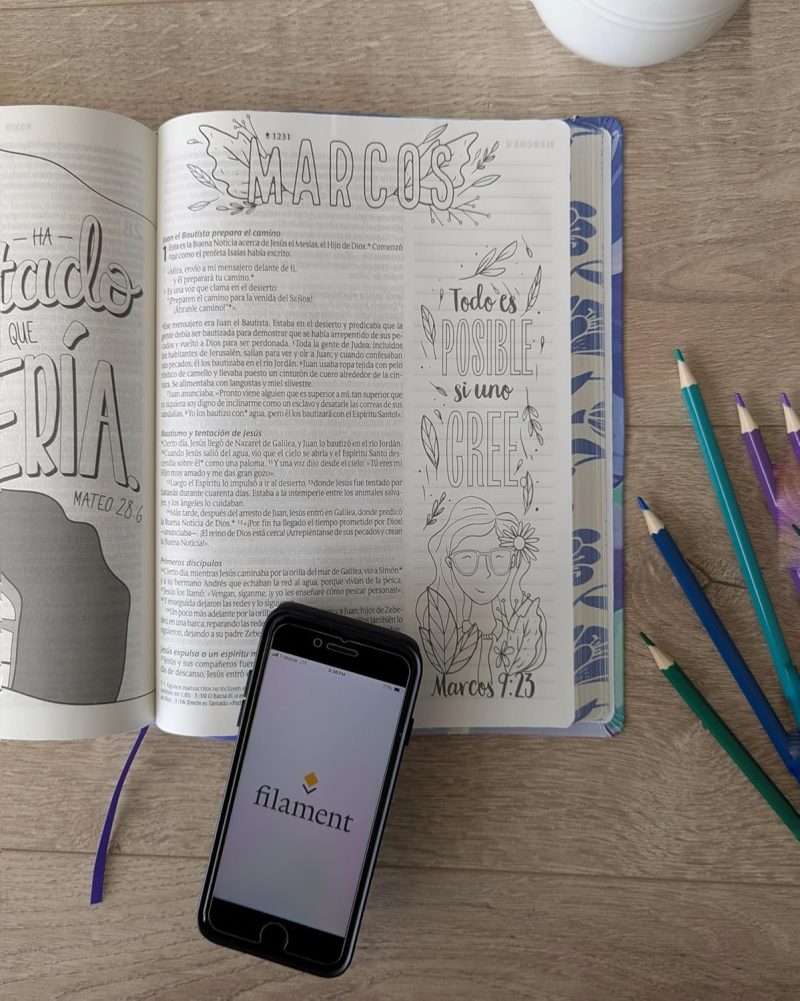 — HA —
tado
QUE
ERÍA.
MATEO 28:6
1231
MARCOS
Juan el Bautista prepara el camino
1 Esta es la Buena Noticia acerca de Jesús el Mesías, el Hijo de Dios.* Comenzó
tal como el profeta Isaías había escrito:
«Mira, envío a mi mensajero delante de ti,
y él preparará tu camino.*
Es una voz que clama en el desierto:
"¡Preparen el camino para la venida del SEÑOR!
¡Ábranle camino!"*».
Ese mensajero era Juan el Bautista. Estaba en el desierto y predicaba que la
gente debía ser bautizada para demostrar que se había arrepentido de sus pe-
cados y vuelto a Dios para ser perdonada. Toda la gente de Judea, incluidos
los habitantes de Jerusalén, salían para ver y oír a Juan; y cuando confesaban
sus pecados, él los bautizaba en el río Jordán. Juan usaba ropa tejida con pelo
rústico de camello y llevaba puesto un cinturón de cuero alrededor de la cin-
tura. Se alimentaba con langostas y miel silvestre.
Juan anunciaba: «Pronto viene alguien que es superior a mí, tan superior que
ni siquiera soy digno de inclinarme como un esclavo y desatarle las correas de sus
sandalias. Yo los bautizo con* agua, ¡pero él los bautizará con el Espíritu Santo!».
Bautismo y tentación de Jesús
Cierto día, Jesús llegó de Nazaret de Galilea, y Juan lo bautizó en el río Jordán.
Cuando Jesús salió del agua, vio que el cielo se abría y el Espíritu Santo des-
cendía sobre él* como una paloma. 11 Y una voz dijo desde el cielo: «Tú eres mi
Hijo muy amado y me das gran gozo».
Luego el Espíritu lo impulsó a ir al desierto, 13 donde Jesús fue tentado por
Satanás durante cuarenta días. Estaba a la intemperie entre los animales salva-
jes, y los ángeles lo cuidaban.
14 Más tarde, después del arresto de Juan, Jesús entró en Galilea, donde predicó
la Buena Noticia de Dios.* 15 «¡Por fin ha llegado el tiempo prometido por Dios!
—anunciaba—. ¡El reino de Dios está cerca! ¡Arrepiéntanse de sus pecados y crean
la Buena Noticia!».
Primeros discípulos
Cierto día, mientras Jesús caminaba por la orilla del mar de Galilea, vio a Simón*
y a su hermano Andrés que echaban la red al agua, porque vivían de la pesca.
Jesús los llamó: «Vengan, síganme, ¡y yo les enseñaré cómo pescar personas!».
Y enseguida dejaron las redes y lo
Un poco más adelante por la orilla
Juan, hijos de Zebe-
deo, en una barca, reparando las redes
también lo
siguieron, dejando a su padre Zebedeo
Jesús expulsa a un espíritu m
Jesús y sus compañeros fueron
día de descanso, Jesús entró
1:1 Algunos manuscritos no incluyen
1:16 Simón es llamado «Ped
Todo es
POSIBLE
si uno
CREE
Marcos 9:23
T-Mobile LTE
77%
filament